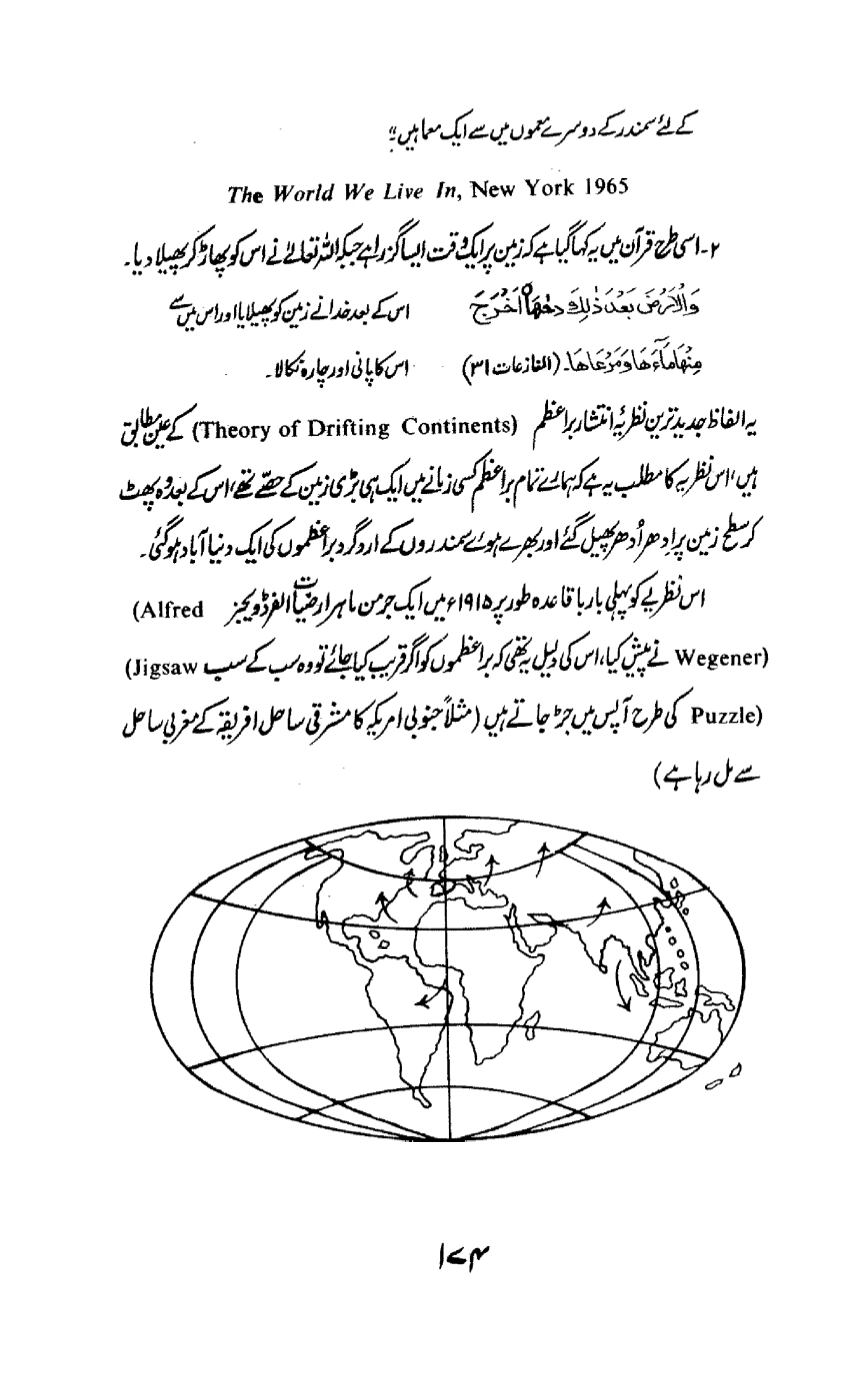 کے لئے سمندر کے دوسرے معموں میں سے ایک معما ہیں۔"
The World We Live In, New York 1965
۲۔ اسی طرح قرآن میں یہ کہا گیا ہے کہ زمین پر ایک وقت ایسا گزرا ہے جبکہ اللہ تعالےٰ نے اس کو پھاڑ کر پھیلا دیا۔
وَالْاَرْضَ بَعْدَ ذٰلِكَ دَحٰهَا اَخْرَجَ اس کے بعد خدا نے زمین کو پھیلایا اور اس میں سے
مِنْهَا مَآءَهَا وَمَرْعَاهَا۔ (النازعات ۳۱) اس کا پانی اور چارہ نکالا۔
یہ الفاظ جدید ترین نظریۂ انتشار براعظم (Theory of Drifting Continents) کے عین مطابق
ہیں، اس نظریہ کا مطلب یہ ہے کہ ہمارے تمام براعظم کسی زمانے میں ایک ہی بڑی زمین کے حصے تھے، اس کے بعد وہ پھٹ
کر سطح زمین پر اِدھر اُدھر پھیل گئے اور بھرے ہوئے سمندروں کے اردگرد براعظموں کی ایک دنیا آباد ہوگئی۔
اس نظریے کو پہلی بار باقاعدہ طور پر ۱۹۱۵ء میں ایک جرمن ماہر ارضیات الفرڈ ویجنر (Alfred
Wegener) نے پیش کیا، اس کی دلیل یہ تھی کہ براعظموں کو اگر قریب کیا جائے تو وہ سب کے سب (Jigsaw
Puzzle) کی طرح آپس میں جڑ جاتے ہیں (مثلاً جنوبی امریکہ کا مشرقی ساحل افریقہ کے مغربی ساحل
سے مل رہا ہے)
۱۷۴